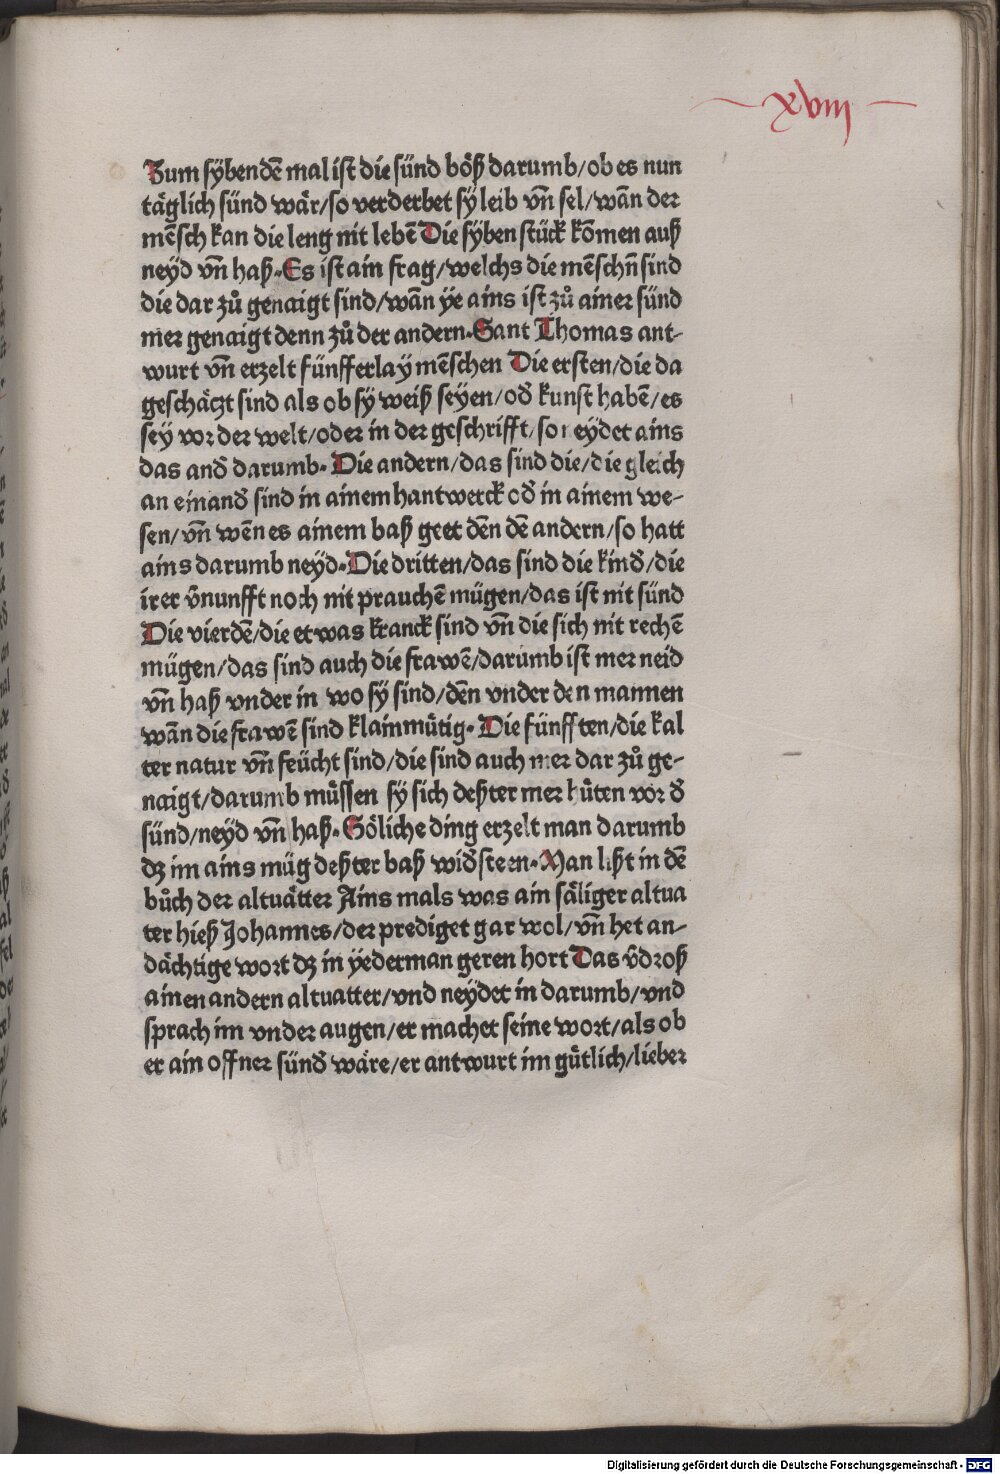 xviij
Zum sybendē mal ist die sünd böß darumb/ob es nun
täglich sünd wär/so verderbet sy leib vñ sel/wañ der
mēsch kan die leng nit lebē Die syben stück kōmen auß
neyd vñ haß. Es ist ain frag/welchs die mēschñ sind
die dar zů genaigt sind/wañ ye ains ist zů ainer sünd
mer genaigt denn zů der andern. Sant Thomas ant-
wurt vñ erzelt fünfferlay mēschen Die ersten/die da
geschätzt sind als ob sy weiß seyen/od̄ kunst habē/es
sey vor der welt/oder in der geschrifft/so neydet ains
das and̄ darumb. Die andern/das sind die/die gleich
an einand̄ sind in ainem hantwerck od̄ in ainem we-
sen/vñ wēn es ainem baß geet dēn dē andern/so hatt
ains darumb neyd. Die dritten/das sind die kind̄/die
irer v̄nunfft noch nit prauchē mügen/das ist nit sünd
Die vierdē/die etwas kranck sind vñ die sich nit rechē
mügen/das sind auch die frawē/darumb ist mer neid
vñ haß vnder in wo sy sind/dēn vnder den mannen
wañ die frawē sind klainmütig. Die fünfften/die kal
ter natur vñ feücht sind/die sind auch mer dar zů ge-
naigt/darumb müssen sy sich deßter mer hüten vor d̄
sünd/neyd vñ haß. Söliche ding erzelt man darumb
dz im ains müg deßter baß wid̄steen. Man lißt in dē
bůch der altuätter Ains mals was ain säliger altua
ter hieß Johannes/der prediget gar wol/vñ het an-
dächtige wort dz in yederman geren hort Das v̄droß
ainen andern altuatter/vnd neydet in darumb/vnd
sprach im vnder augen/er machet seine wort/als ob
er ain offner sünd̄ wäre/er antwurt im gütlich/lieber
Digitalisierung gefördert durch die Deutsche Forschungsgemeinschaft - DFG